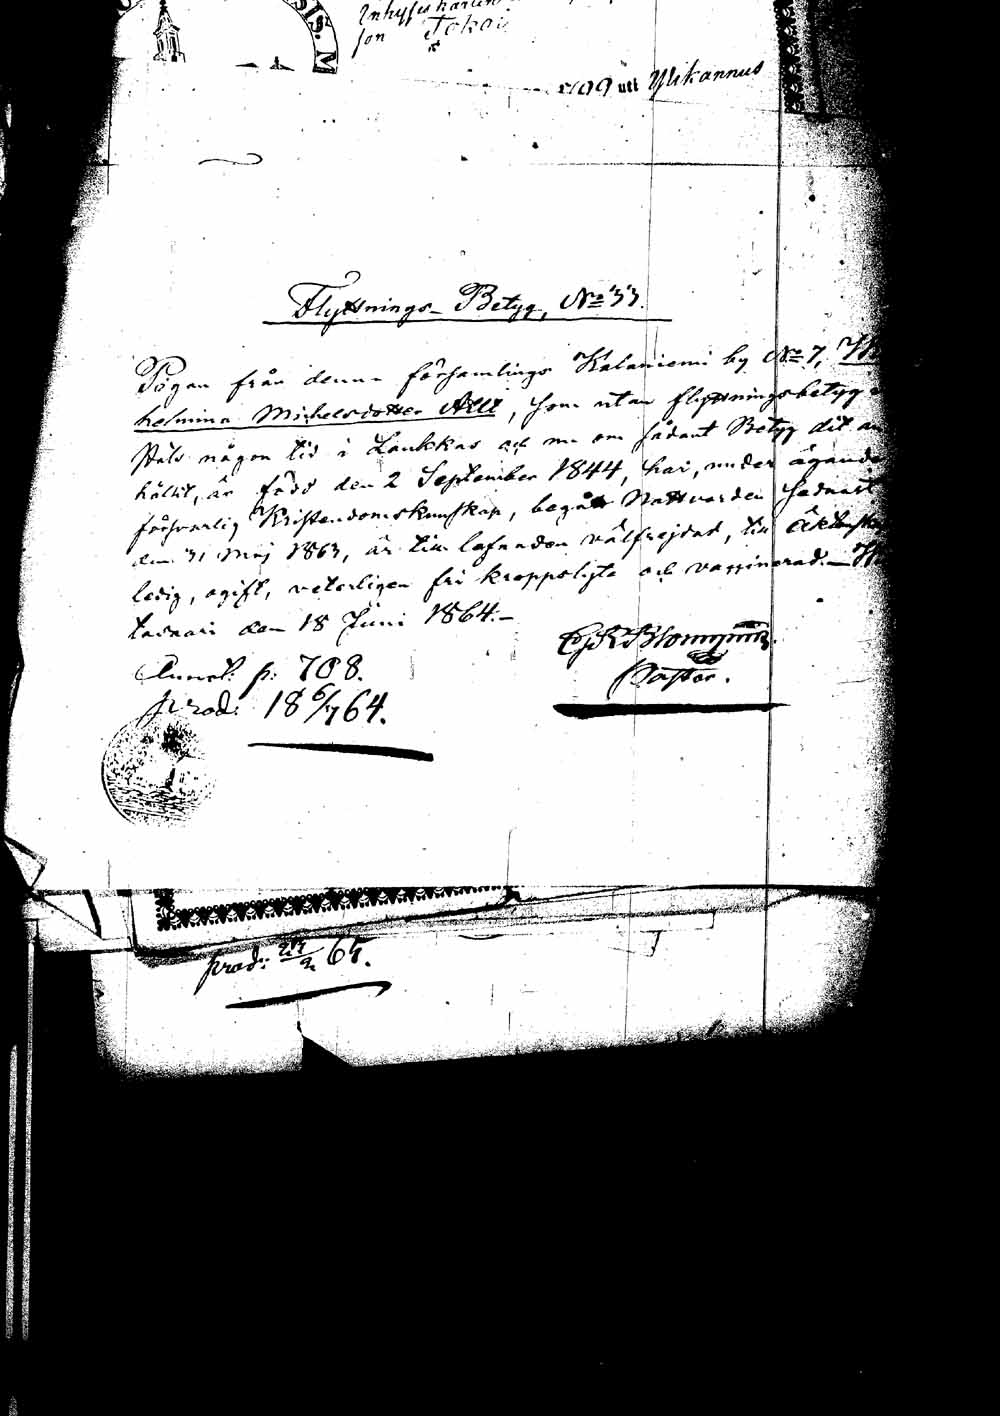 SIS. M
Inhyses karlen
son Tokoi
utt Ylikannus
Flyttnings-Betyg, No 33.
Pigan från denna församlings Kalaniemi by No 7,
helmina Michelsdotter Alli, som utan flyttningsbetyg
någon tid i Laukkas och nu om sådant Betyg dit an
hållit, är född den 2 September 1844, har, under ägande
försvarlig Kristendomskunskap, begått Nattvarden sednast
den 31 Maj 1863, är till lefnaden välfrejdad, till äktenskap
ledig, ogift, veterligen fri kroppslyte och vaccinerad.—
den 18 Juni 1864.—
Blomqvist
Pastor.
Annot. p. 708.
prod: 18 6/7 64.
prod: 65.